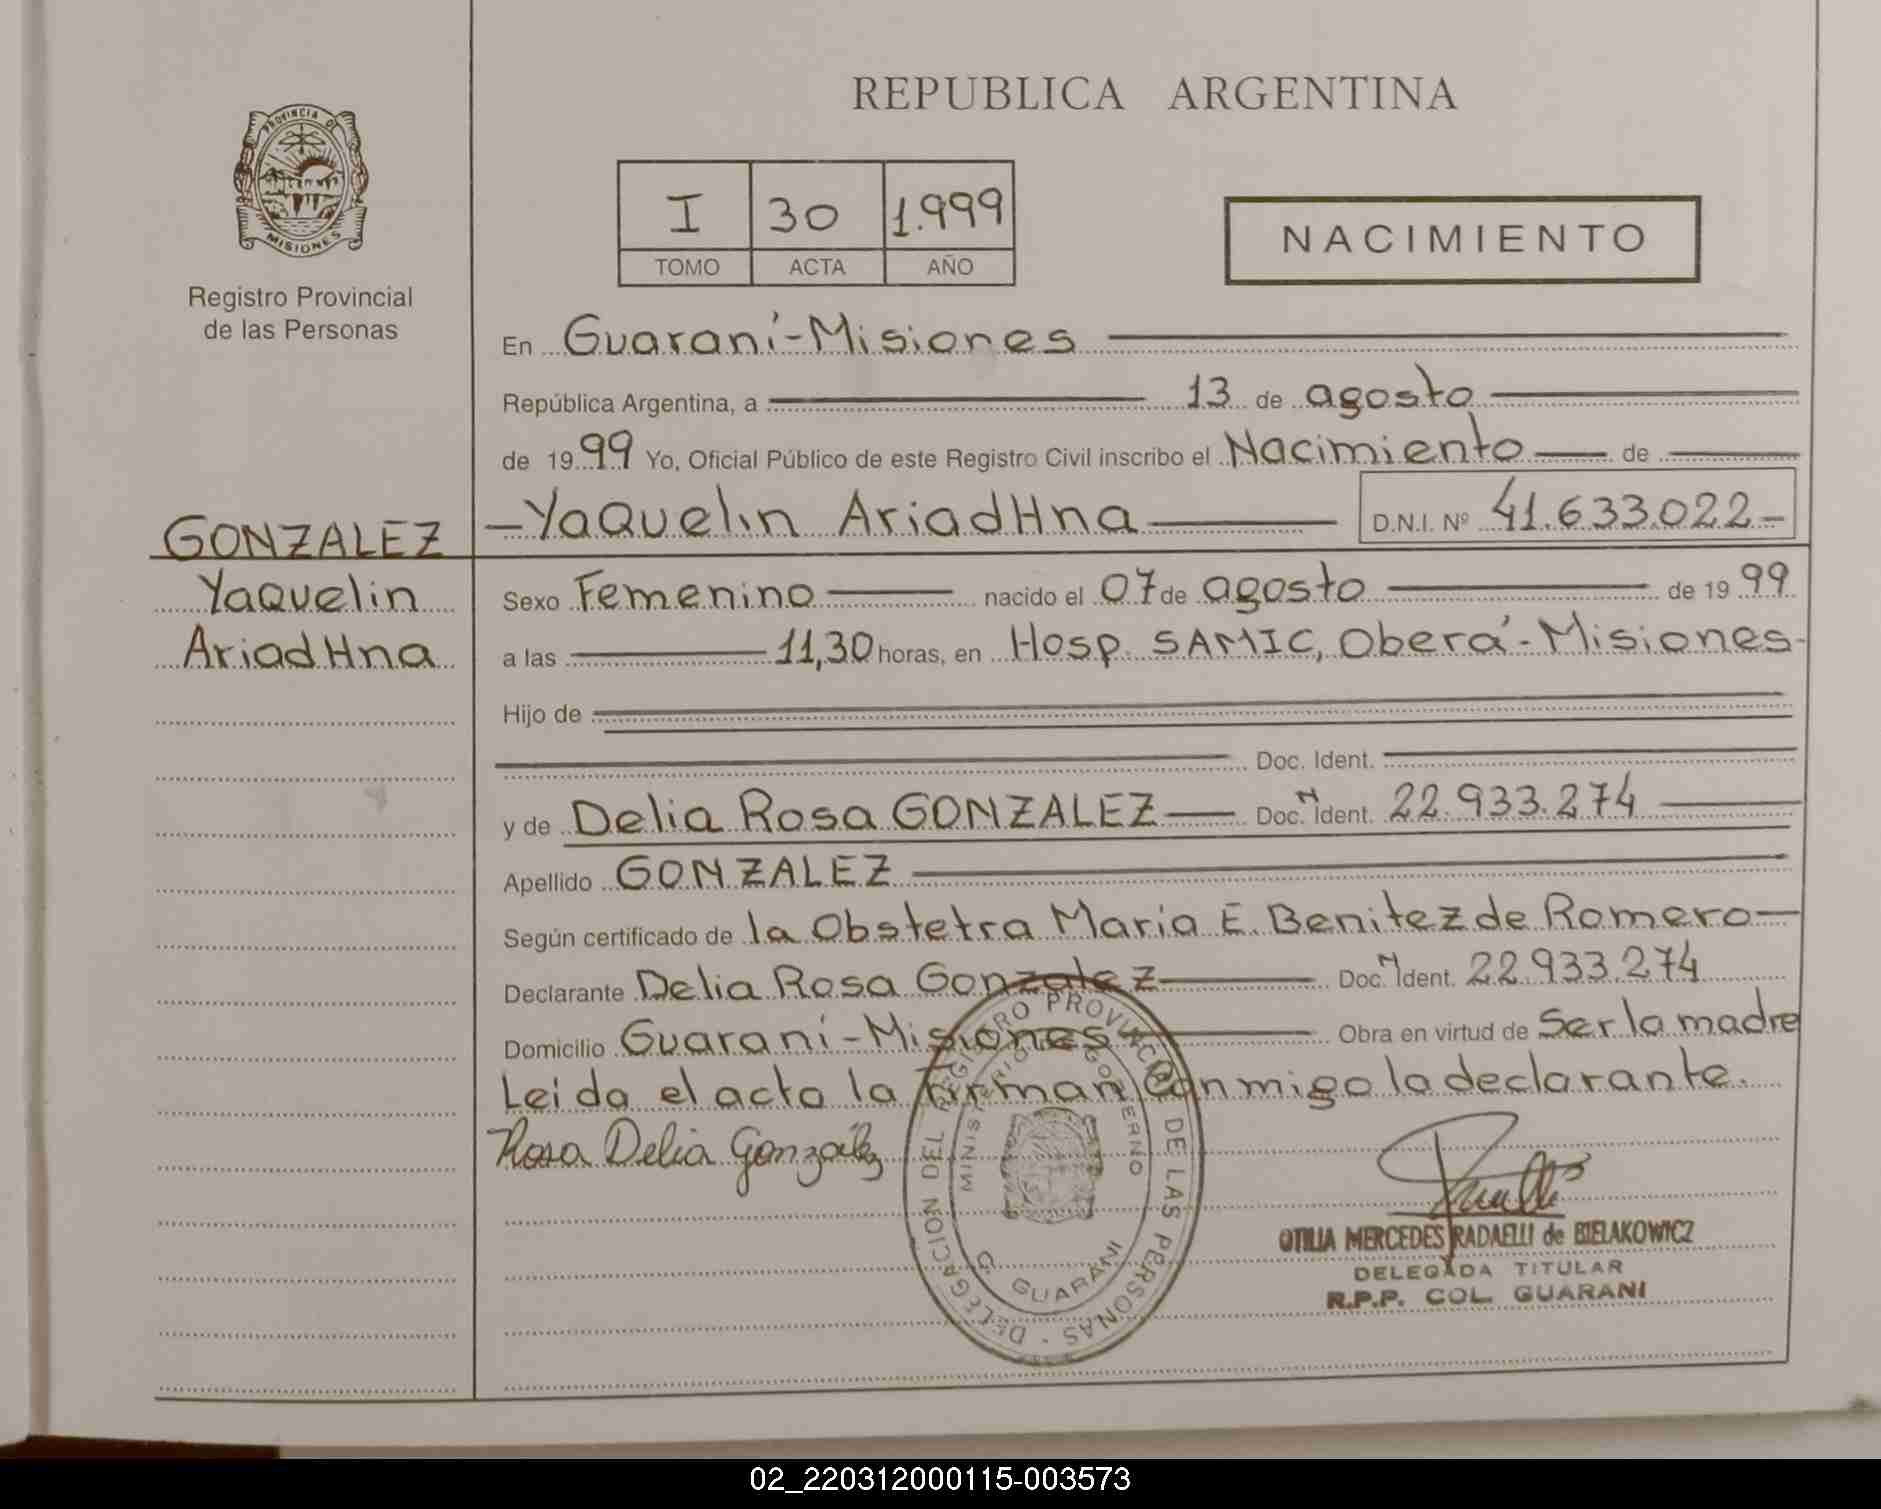 REPUBLICA ARGENTINA
PROVINCIA DE
MISIONES
Registro Provincial
de las Personas
I 30 1.999
TOMO ACTA AÑO
NACIMIENTO
En Guaraní-Misiones
República Argentina, a 13 de agosto
de 1999 Yo, Oficial Público de este Registro Civil inscribo el Nacimiento de
GONZALEZ
Yaquelin
AriadHna
Yaquelin AriadHna D.N.I. Nº 41.633.022-
Sexo Femenino nacido el 07 de agosto de 1999
a las 11,30 horas, en Hosp. SAMIC, Oberá-Misiones-
Hijo de
Doc. Ident.
y de Delia Rosa GONZALEZ Doc. N Ident. 22.933.274
Apellido GONZALEZ
Según certificado de la Obstetra Maria E. Benitez de Romero
Declarante Delia Rosa Gonzalez Doc. N Ident. 22.933.274
Domicilio Guaraní-Misiones Obra en virtud de Ser la madre
Leida el acta la firman conmigo la declarante.
Rosa Delia González
DELEGACION DEL REGISTRO PROVINCIAL DE LAS PERSONAS
MINISTERIO DE GOBIERNO
C. GUARANI
OTILIA MERCEDES RADAELLI de BIELAKOWICZ
DELEGADA TITULAR
R.P.P. COL. GUARANI
02_220312000115-003573